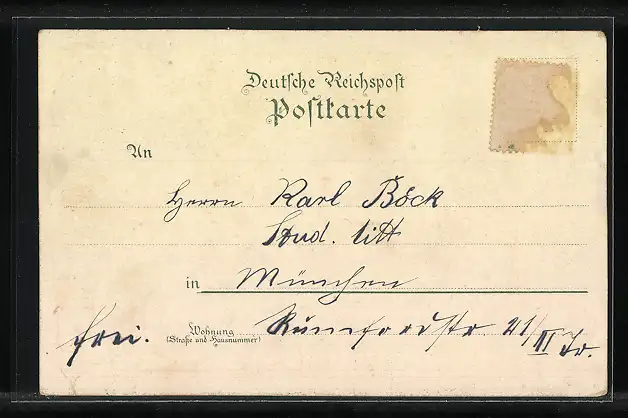 Deutsche Reichspost
Postkarte
An
Herrn Karl Böck
Stud. litt
in München
Wohnung
(Straße und Hausnummer)
Rumfordstr 21/II
frei.